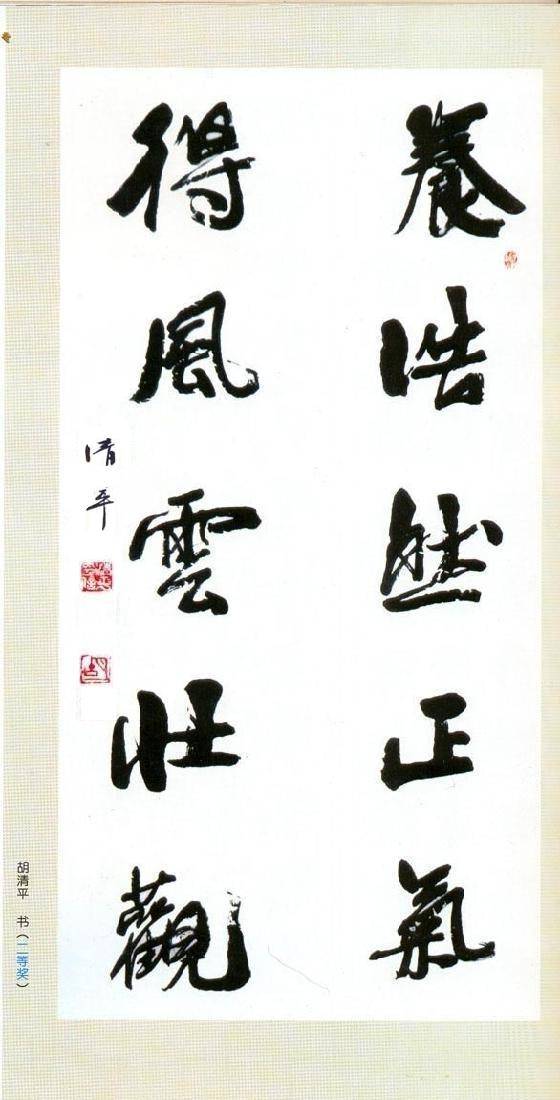 養浩然正氣
得風雲壯觀
清平
胡清平 书（二等奖）